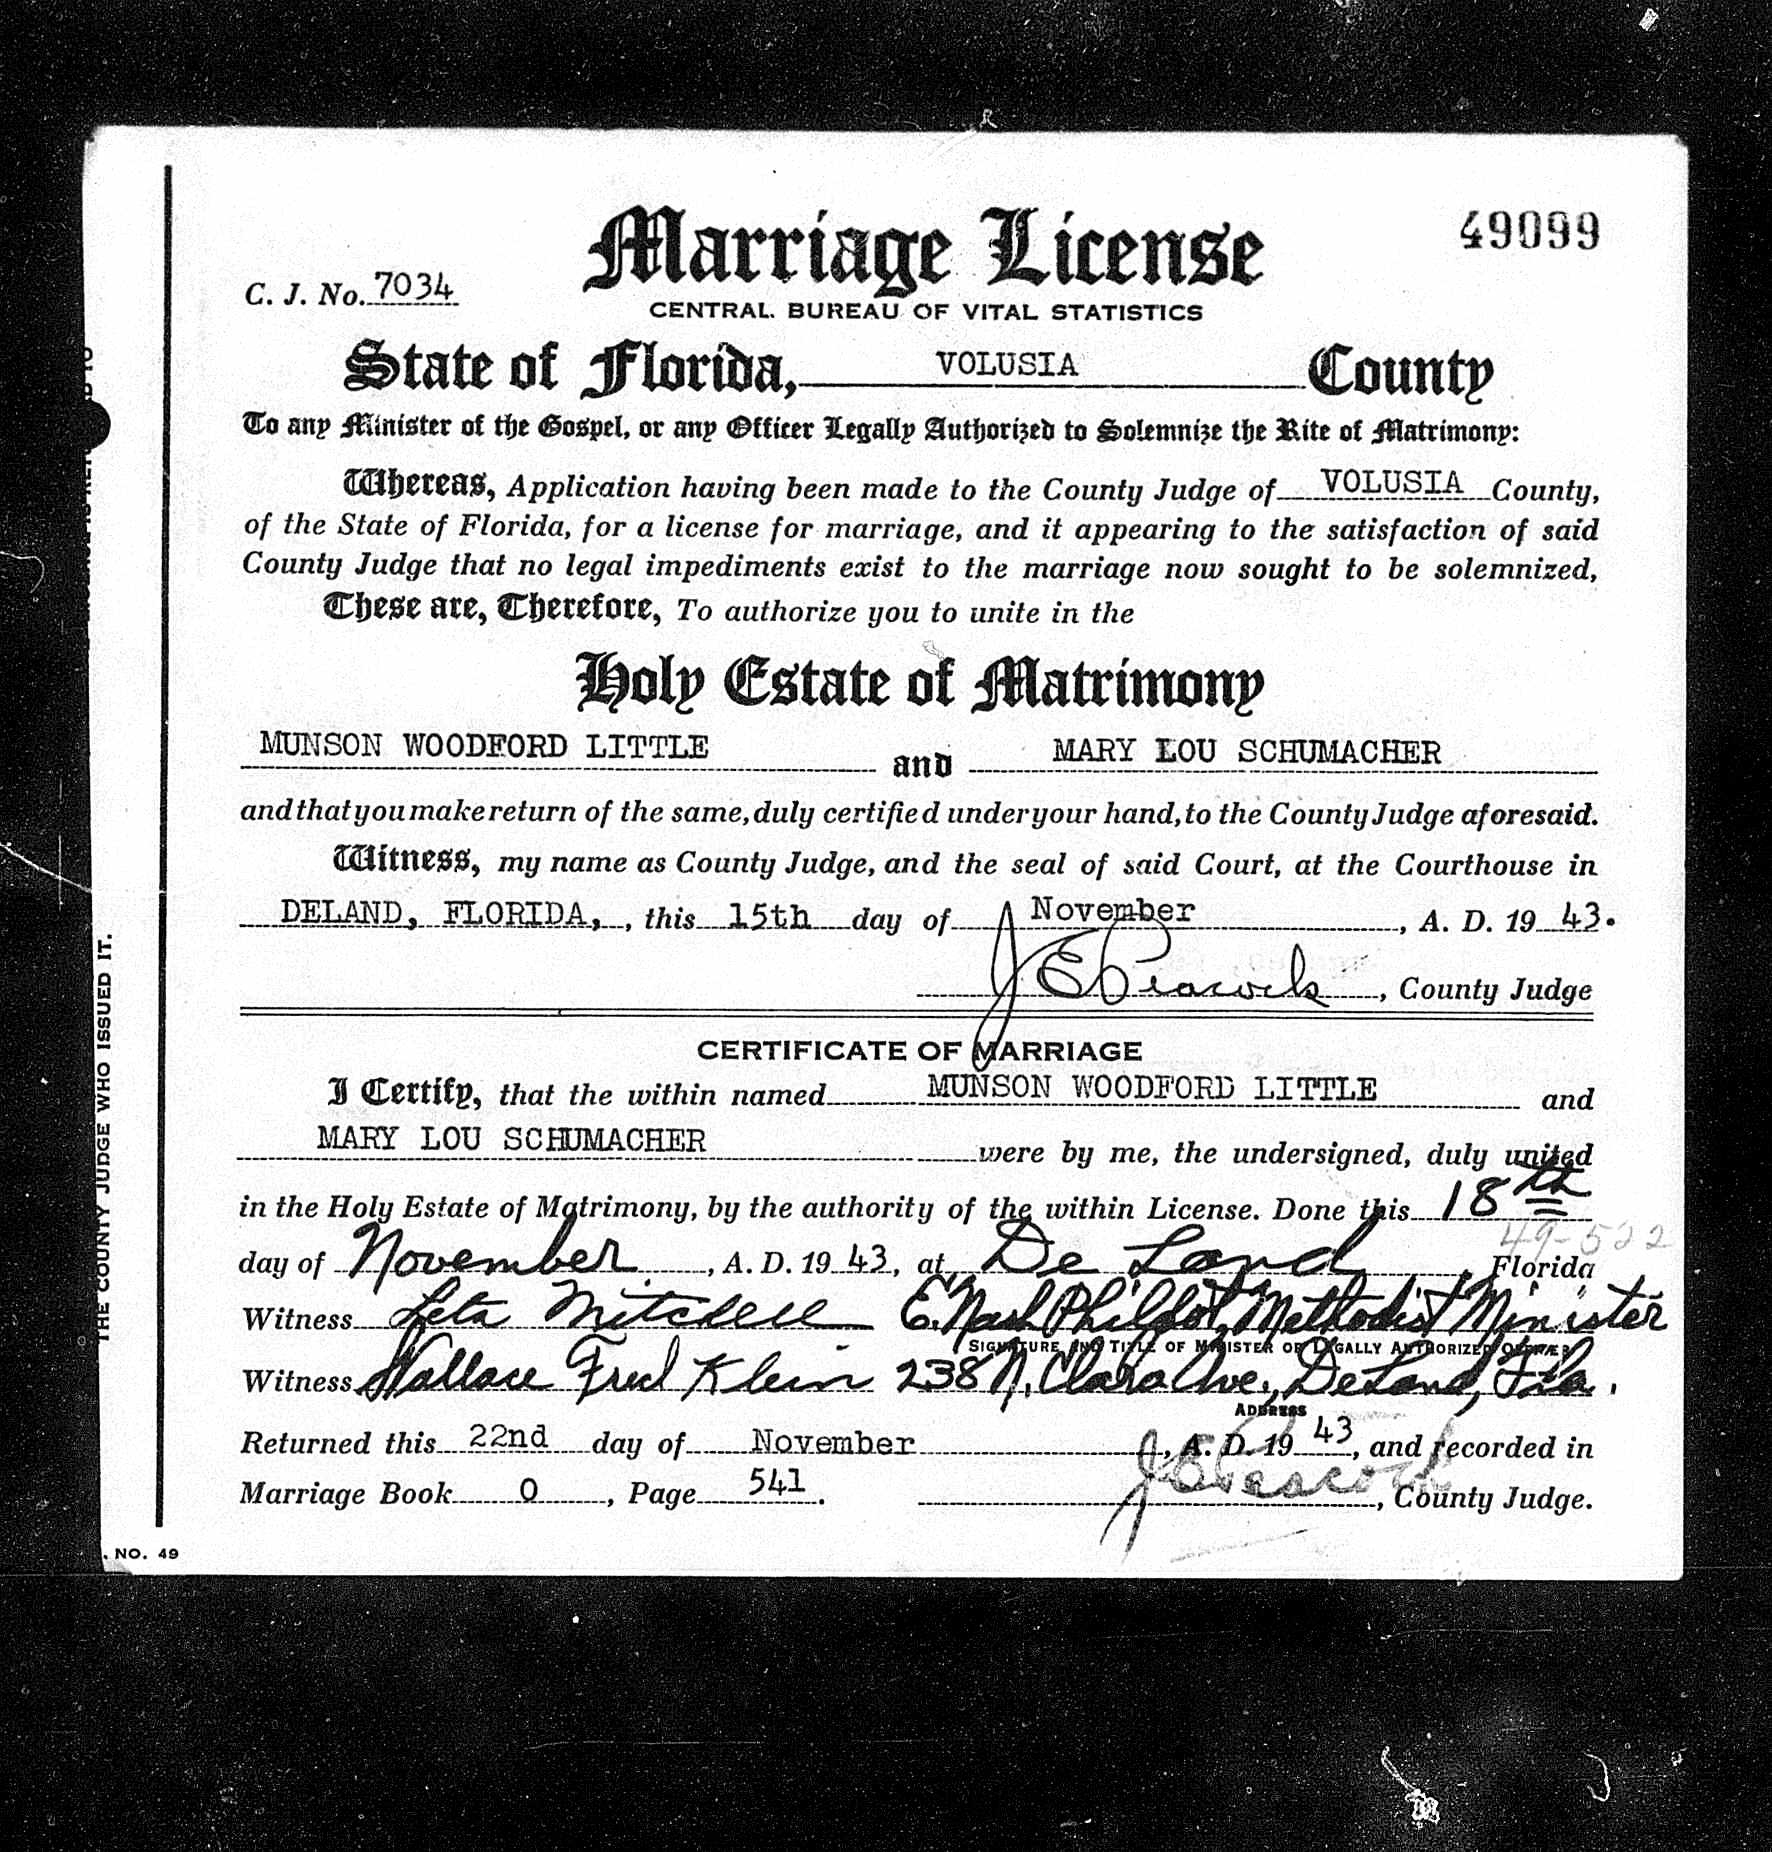 49099
Marriage License
C. J. No. 7034
CENTRAL BUREAU OF VITAL STATISTICS
State of Florida, VOLUSIA County
To any Minister of the Gospel, or any Officer Legally Authorized to Solemnize the Rite of Matrimony:
Whereas, Application having been made to the County Judge of VOLUSIA County,
of the State of Florida, for a license for marriage, and it appearing to the satisfaction of said
County Judge that no legal impediments exist to the marriage now sought to be solemnized,
These are, Therefore, To authorize you to unite in the
Holy Estate of Matrimony
MUNSON WOODFORD LITTLE and MARY LOU SCHUMACHER
and that you make return of the same, duly certified under your hand, to the County Judge aforesaid.
Witness, my name as County Judge, and the seal of said Court, at the Courthouse in
DELAND, FLORIDA, , this 15th day of November, A. D. 19 43.
J E Peacock, County Judge
CERTIFICATE OF MARRIAGE
I Certify, that the within named MUNSON WOODFORD LITTLE and
MARY LOU SCHUMACHER were by me, the undersigned, duly united
in the Holy Estate of Matrimony, by the authority of the within License. Done this 18th
49-522
day of November, A. D. 19 43, at De Land, Florida
Witness Leta Mitchell E. Nash Philpot, Methodist Minister
SIGNATURE AND TITLE OF MINISTER OR LEGALLY AUTHORIZED OFFICER
Witness Wallace Fred Klein 238 N. Clara Ave., De Land, Fla.
ADDRESS
Returned this 22nd day of November, A. D. 19 43, and recorded in
Marriage Book O, Page 541. J E Peacock, County Judge.
THE COUNTY JUDGE WHO ISSUED IT.
. NO. 49